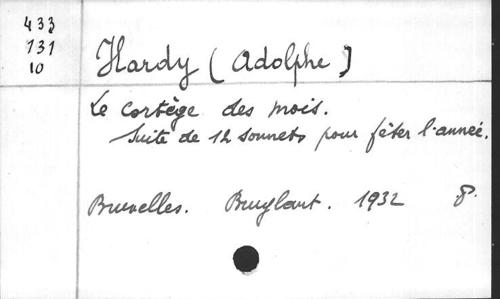 433
131
10
Hardy (Adolphe)
Le cortège des mois.
Suite de 12 sonnets pour fêter l'année.
Bruxelles. Bruylant. 1932 8°.